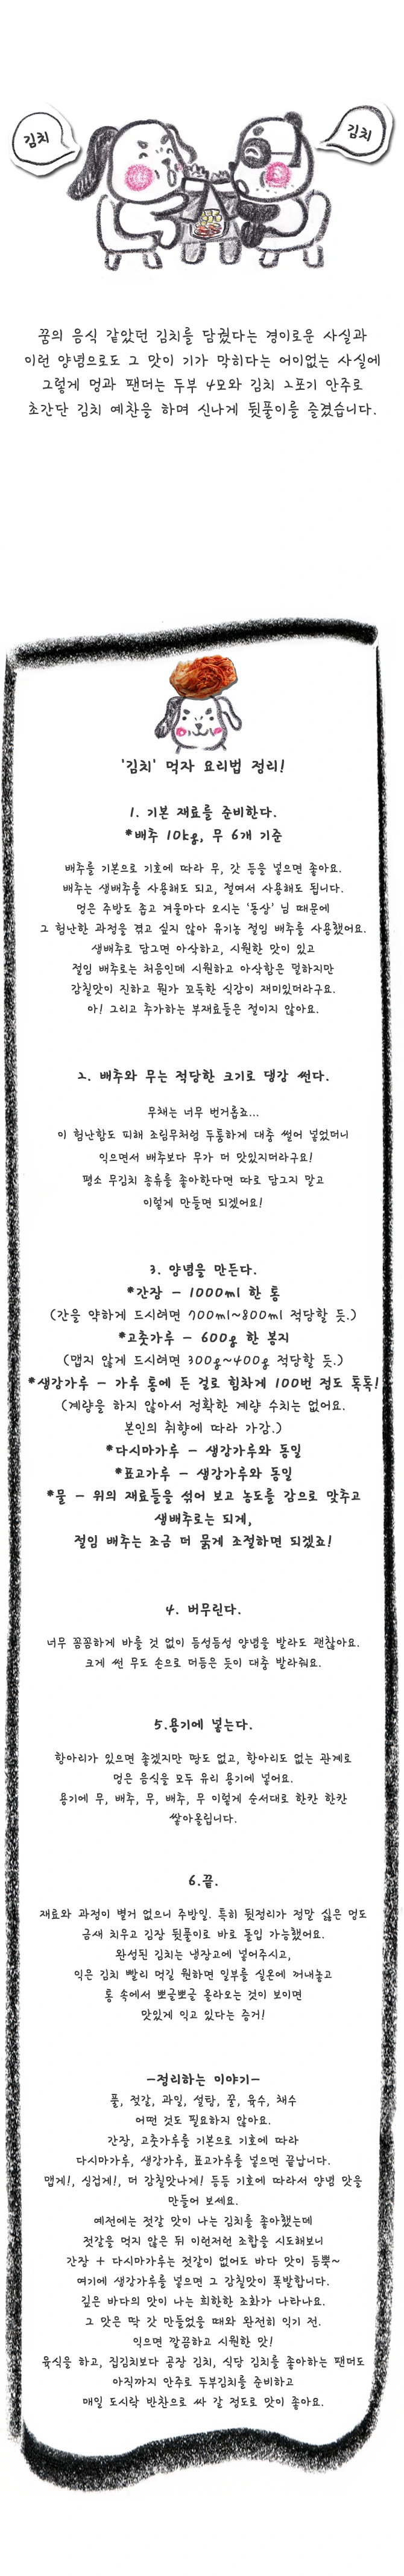 김치
김치
꿈의 음식 같았던 김치를 담궜다는 경이로운 사실과
이런 양념으로도 그 맛이 기가 막히다는 어이없는 사실에
그렇게 멍과 팬더는 두부 4모와 김치 2포기 안주로
초간단 김치 예찬을 하며 신나게 뒷풀이를 즐겼습니다.
'김치' 먹자 요리법 정리!
1. 기본 재료를 준비한다.
*배추 10kg, 무 6개 기준
배추를 기본으로 기호에 따라 무, 갓 등을 넣으면 좋아요.
배추는 생배추를 사용해도 되고, 절여서 사용해도 됩니다.
멍은 주방도 좁고 겨울마다 오시는 '동상' 님 때문에
그 험난한 과정을 겪고 싶지 않아 유기농 절임 배추를 사용했어요.
생배추로 담그면 아삭하고, 시원한 맛이 있고
절임 배추로는 처음인데 시원하고 아삭함은 덜하지만
감칠맛이 진하고 뭔가 꼬득한 식감이 재미있더라구요.
아! 그리고 추가하는 부재료들은 절이지 않아요.
2. 배추와 무는 적당한 크기로 댕강 썬다.
무채는 너무 번거롭죠...
이 험난함도 피해 조림무처럼 두툼하게 대충 썰어 넣었더니
익으면서 배추보다 무가 더 맛있지더라구요!
평소 무김치 종류를 좋아한다면 따로 담그지 말고
이렇게 만들면 되겠어요!
3. 양념을 만든다.
*간장 - 1000ml 한 통
(간을 약하게 드시려면 700ml~800ml 적당할 듯.)
*고춧가루 - 600g 한 봉지
(맵지 않게 드시려면 300g~400g 적당할 듯.)
*생강가루 - 가루 통에 든 걸로 힘차게 100번 정도 톡톡!
(계량을 하지 않아서 정확한 계량 수치는 없어요.
본인의 취향에 따라 가감.)
*다시마가루 - 생강가루와 동일
*표고가루 - 생강가루와 동일
*물 - 위의 재료들을 섞어 보고 농도를 감으로 맞추고
생배추로는 되게,
절임 배추는 조금 더 묽게 조절하면 되겠죠!
4. 버무린다.
너무 꼼꼼하게 바를 것 없이 듬성듬성 양념을 발라도 괜찮아요.
크게 썬 무도 손으로 더듬은 듯이 대충 발라줘요.
5.용기에 넣는다.
항아리가 있으면 좋겠지만 땅도 없고, 항아리도 없는 관계로
멍은 음식을 모두 유리 용기에 넣어요.
용기에 무, 배추, 무, 배추, 무 이렇게 순서대로 한칸 한칸
쌓아올립니다.
6.끝.
재료와 과정이 별거 없으니 주방일. 특히 뒷정리가 정말 싫은 멍도
금새 치우고 김장 뒷풀이로 바로 돌입 가능했어요.
완성된 김치는 냉장고에 넣어주시고,
익은 김치 빨리 먹길 원하면 일부를 실온에 꺼내놓고
통 속에서 뽀글뽀글 올라오는 것이 보이면
맛있게 익고 있다는 증거!
-정리하는 이야기-
풀, 젓갈, 과일, 설탕, 꿀, 육수, 채수
어떤 것도 필요하지 않아요.
간장, 고춧가루를 기본으로 기호에 따라
다시마가루, 생강가루, 표고가루를 넣으면 끝납니다.
맵게!, 싱겁게!, 더 감칠맛나게! 등등 기호에 따라서 양념 맛을
만들어 보세요.
예전에는 젓갈 맛이 나는 김치를 좋아했는데
젓갈을 먹지 않은 뒤 이런저런 조합을 시도해보니
간장 + 다시마가루는 젓갈이 없어도 바다 맛이 듬뿍~
여기에 생강가루를 넣으면 그 감칠맛이 폭발합니다.
깊은 바다의 맛이 나는 희한한 조화가 나타나요.
그 맛은 딱 갓 만들었을 때와 완전히 익기 전.
익으면 깔끔하고 시원한 맛!
육식을 하고, 집김치보다 공장 김치, 식당 김치를 좋아하는 팬더도
아직까지 안주로 두부김치를 준비하고
매일 도시락 반찬으로 싸 갈 정도로 맛이 좋아요.